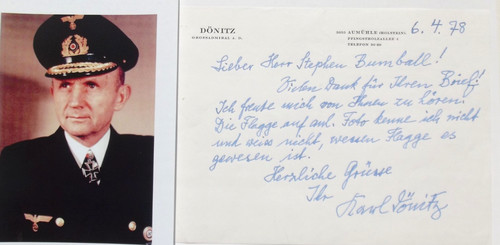 DÖNITZ
GROSSADMIRAL A. D.
AUMÜHLE (HOLSTEIN)
PFINGSTHOLZALLEE 4
TELEFON
6. 4. 78
Lieber Herr Stephen Bumball!
Vielen Dank für Ihren Brief!
Ich freute mich von Ihnen zu hören.
Die Flagge auf anl. Foto kenne ich nicht
und weiss nicht, wessen Flagge es
gewesen ist.
Herzliche Grüsse
Ihr
Karl Dönitz